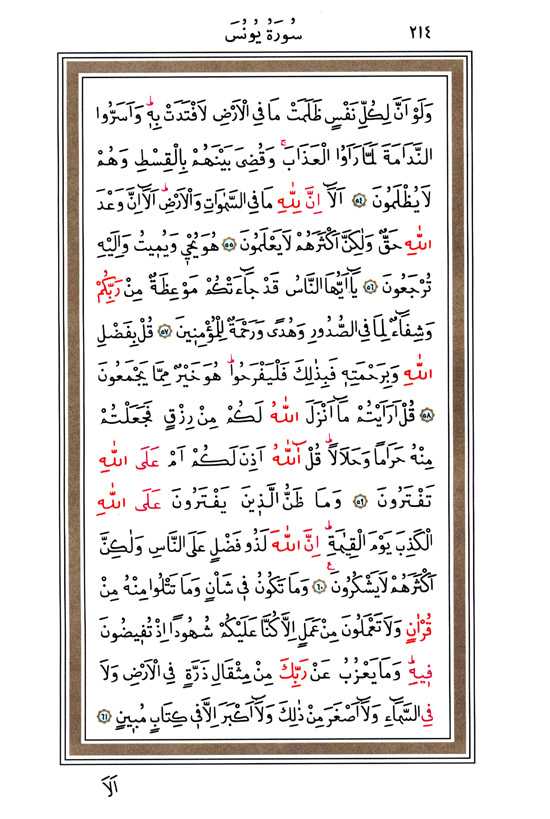 ٢١٤ سُورَةُ يُونُسَ
وَلَوْ اَنَّ لِكُلِّ نَفْسٍ ظَلَمَتْ مَا فِى الْاَرْضِ لَافْتَدَتْ بِهِۜ وَاَسَرُّوا
النَّدَامَةَ لَمَّا رَاَوُا الْعَذَابَۚ وَقُضِىَ بَيْنَهُمْ بِالْقِسْطِ وَهُمْ
لَا يُظْلَمُونَ ﴿٥٤﴾ اَلَٓا اِنَّ لِلّٰهِ مَا فِى السَّمٰوَاتِ وَالْاَرْضِۜ اَلَٓا اِنَّ وَعْدَ
اللّٰهِ حَقٌّ وَلٰكِنَّ اَكْثَرَهُمْ لَا يَعْلَمُونَ ﴿٥٥﴾ هُوَ يُحْيٖ وَيُمٖيتُ وَاِلَيْهِ
تُرْجَعُونَ ﴿٥٦﴾ يَٓا اَيُّهَا النَّاسُ قَدْ جَٓاءَتْكُمْ مَوْعِظَةٌ مِنْ رَبِّكُمْ
وَشِفَٓاءٌ لِمَا فِى الصُّدُورِ وَهُدًى وَرَحْمَةٌ لِلْمُؤْمِنٖينَ ﴿٥٧﴾ قُلْ بِفَضْلِ
اللّٰهِ وَبِرَحْمَتِهٖ فَبِذٰلِكَ فَلْيَفْرَحُواۜ هُوَ خَيْرٌ مِمَّا يَجْمَعُونَ
﴿٥٨﴾ قُلْ اَرَاَيْتُمْ مَٓا اَنْزَلَ اللّٰهُ لَكُمْ مِنْ رِزْقٍ فَجَعَلْتُمْ
مِنْهُ حَرَامًا وَحَلَالًاۜ قُلْ اٰللّٰهُ اَذِنَ لَكُمْ اَمْ عَلَى اللّٰهِ
تَفْتَرُونَ ﴿٥٩﴾ وَمَا ظَنُّ الَّذٖينَ يَفْتَرُونَ عَلَى اللّٰهِ
الْكَذِبَ يَوْمَ الْقِيٰمَةِۜ اِنَّ اللّٰهَ لَذُو فَضْلٍ عَلَى النَّاسِ وَلٰكِنَّ
اَكْثَرَهُمْ لَا يَشْكُرُونَ ﴿٦٠﴾ وَمَا تَكُونُ فٖى شَاْنٍ وَمَا تَتْلُوا مِنْهُ مِنْ
قُرْاٰنٍ وَلَا تَعْمَلُونَ مِنْ عَمَلٍ اِلَّا كُنَّا عَلَيْكُمْ شُهُودًا اِذْ تُفٖيضُونَ
فٖيهِۜ وَمَا يَعْزُبُ عَنْ رَبِّكَ مِنْ مِثْقَالِ ذَرَّةٍ فِى الْاَرْضِ وَلَا
فِى السَّمَٓاءِ وَلَٓا اَصْغَرَ مِنْ ذٰلِكَ وَلَٓا اَكْبَرَ اِلَّا فٖى كِتَابٍ مُبٖينٍ ﴿٦١﴾
اَلَٓا